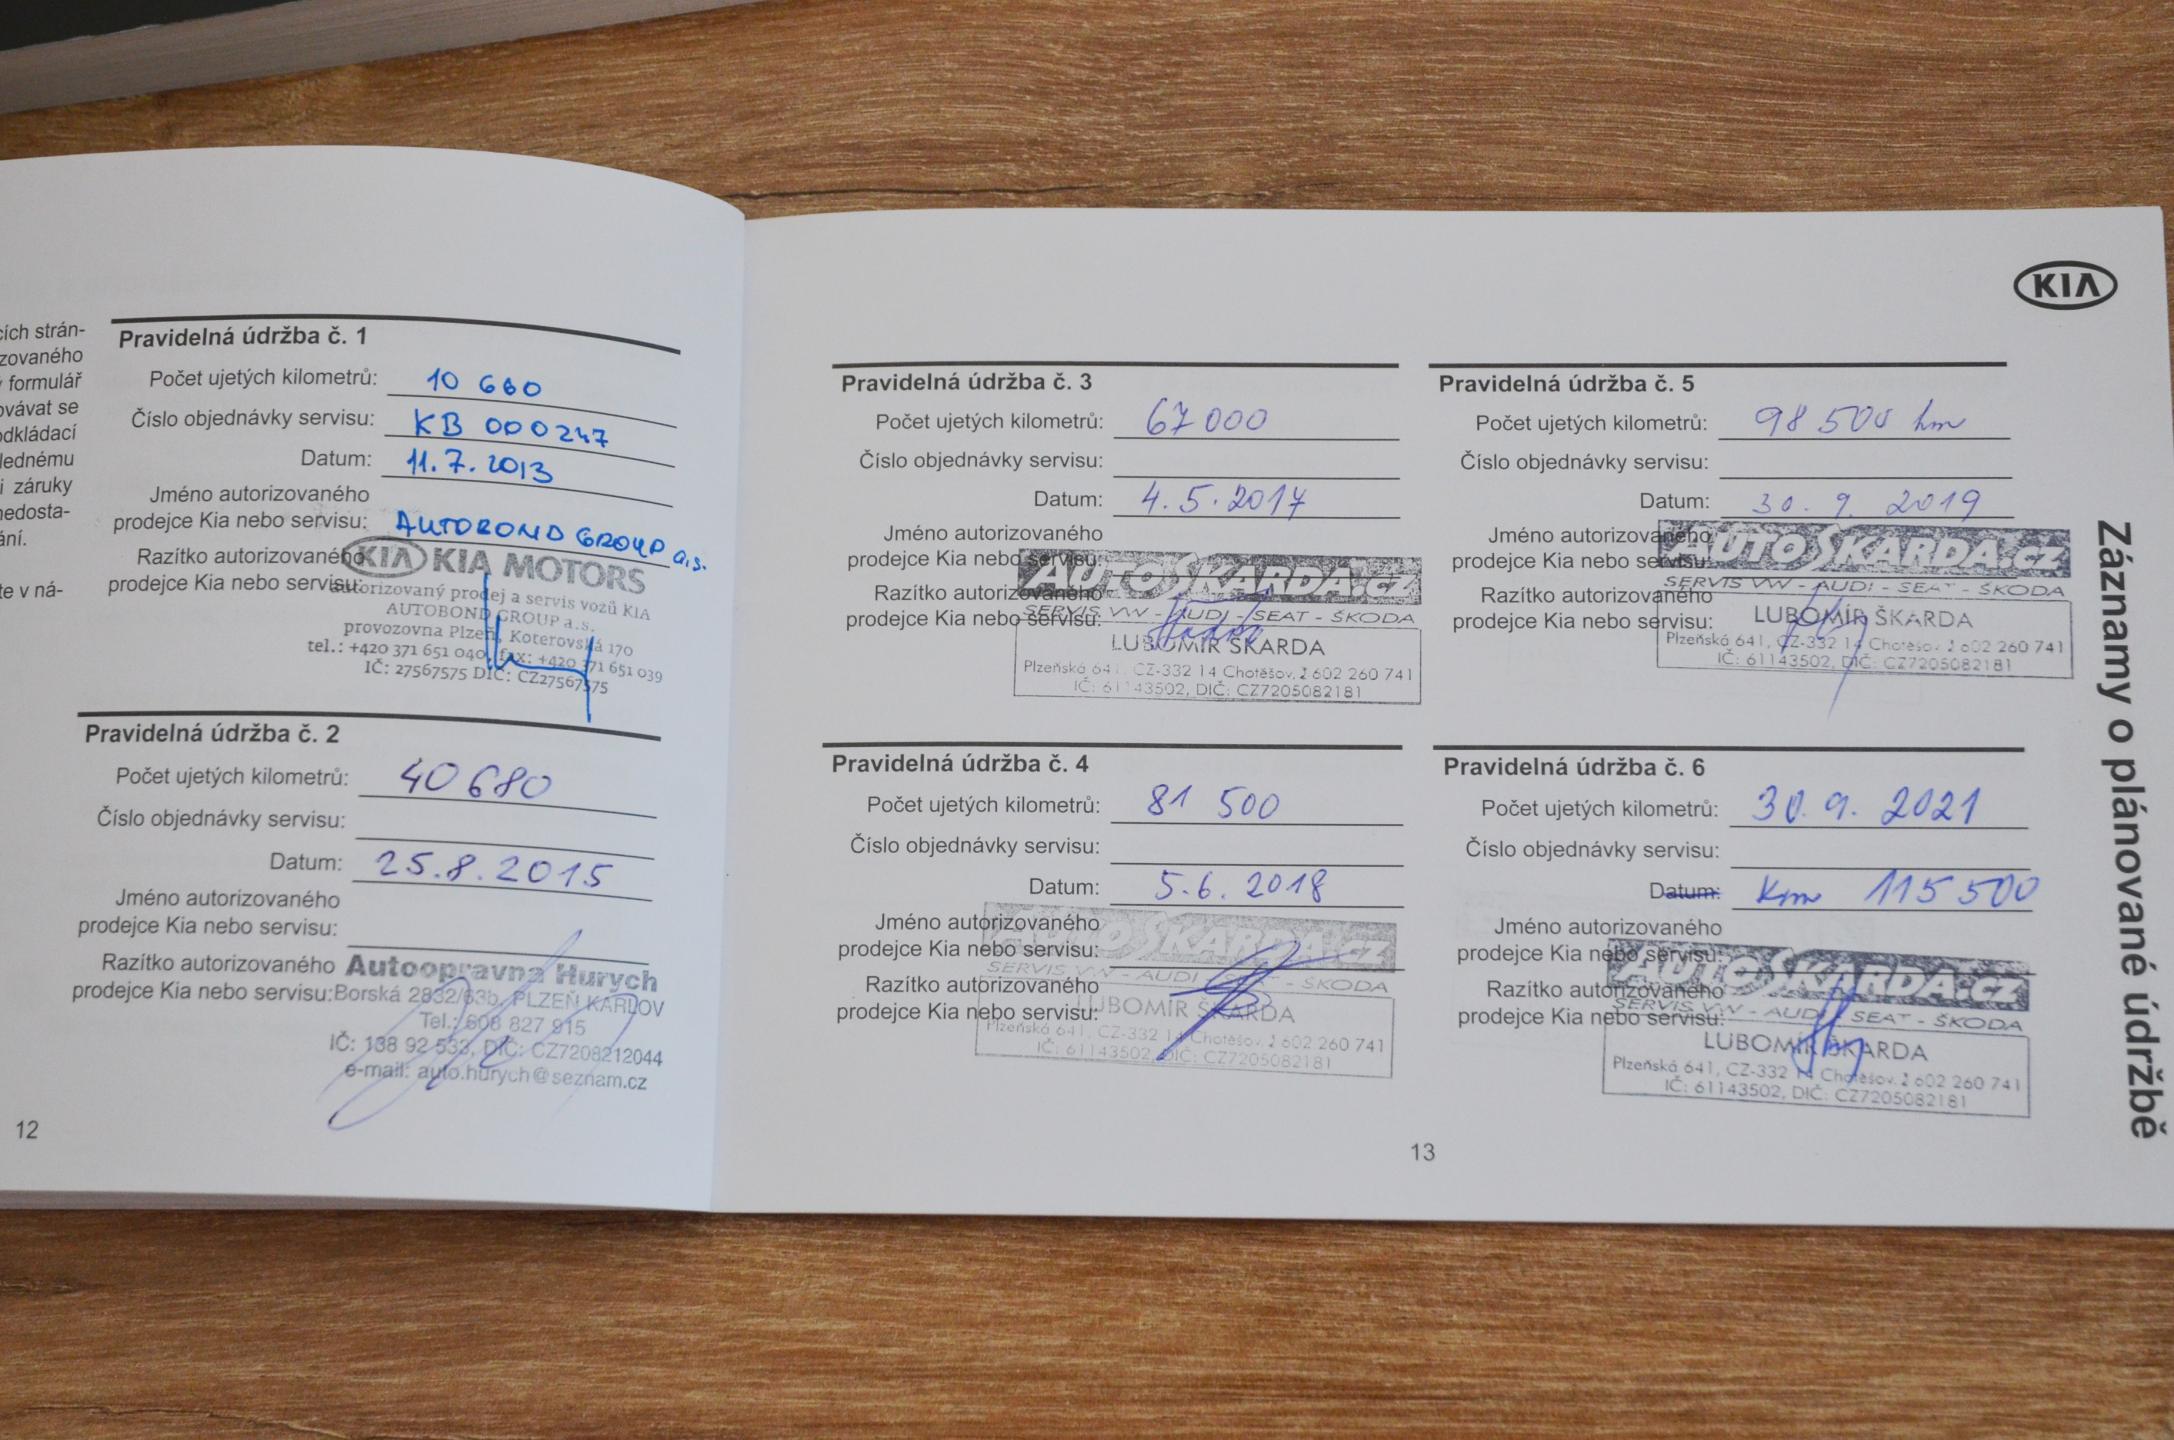 cích strán-
zovaného
formulář
ovávat se
odkládací
lednému
i záruky
nedosta-
ání.
te v ná-
Pravidelná údržba č. 1
Počet ujetých kilometrů: 10 660
Číslo objednávky servisu: KB 000247
Datum: 11.7.2013
Jméno autorizovaného
prodejce Kia nebo servisu: AUTOBOND GROUP a.s.
Razítko autorizovaného
prodejce Kia nebo servisu:
KIA KIA MOTORS
autorizovaný prodej a servis vozů KIA
AUTOBOND GROUP a.s.
provozovna Plzeň, Koterovská 170
tel.: +420 371 651 040, fax: +420 371 651 039
IČ: 27567575 DIČ: CZ27567575
Pravidelná údržba č. 2
Počet ujetých kilometrů: 40 680
Číslo objednávky servisu:
Datum: 25.8.2015
Jméno autorizovaného
prodejce Kia nebo servisu:
Razítko autorizovaného
prodejce Kia nebo servisu:
Autoopravna Hurych
Borská 2832/63b, PLZEŇ KARLOV
Tel.: 608 827 915
IČ: 138 92 533, DIČ: CZ7208212044
e-mail: auto.hurych@seznam.cz
12
KIA
Pravidelná údržba č. 3
Počet ujetých kilometrů: 67 000
Číslo objednávky servisu:
Datum: 4.5.2017
Jméno autorizovaného
prodejce Kia nebo servisu:
Razítko autorizovaného
prodejce Kia nebo servisu:
AUTOŠKARDA.CZ
SERVIS VW - AUDI - SEAT - ŠKODA
LUBOMÍR ŠKARDA
Plzeňská 641, CZ-332 14 Chotěšov, 602 260 741
IČ: 61143502, DIČ: CZ7205082181
Pravidelná údržba č. 4
Počet ujetých kilometrů: 81 500
Číslo objednávky servisu:
Datum: 5.6.2018
Jméno autorizovaného
prodejce Kia nebo servisu:
Razítko autorizovaného
prodejce Kia nebo servisu:
AUTOŠKARDA.CZ
SERVIS VW - AUDI - SEAT - ŠKODA
LUBOMÍR ŠKARDA
Plzeňská 641, CZ-332 14 Chotěšov, 602 260 741
IČ: 61143502, DIČ: CZ7205082181
Pravidelná údržba č. 5
Počet ujetých kilometrů: 98 500 km
Číslo objednávky servisu:
Datum: 30. 9. 2019
Jméno autorizovaného
prodejce Kia nebo servisu:
Razítko autorizovaného
prodejce Kia nebo servisu:
AUTOŠKARDA.CZ
SERVIS VW - AUDI - SEAT - ŠKODA
LUBOMÍR ŠKARDA
Plzeňská 641, CZ-332 14 Chotěšov, 602 260 741
IČ: 61143502, DIČ: CZ7205082181
Pravidelná údržba č. 6
Počet ujetých kilometrů: 30. 9. 2021
Číslo objednávky servisu:
Datum: Km 115 500
Jméno autorizovaného
prodejce Kia nebo servisu:
Razítko autorizovaného
prodejce Kia nebo servisu:
AUTOŠKARDA.CZ
SERVIS VW - AUDI - SEAT - ŠKODA
LUBOMÍR ŠKARDA
Plzeňská 641, CZ-332 14 Chotěšov, 602 260 741
IČ: 61143502, DIČ: CZ7205082181
13
Záznamy o plánované údržbě